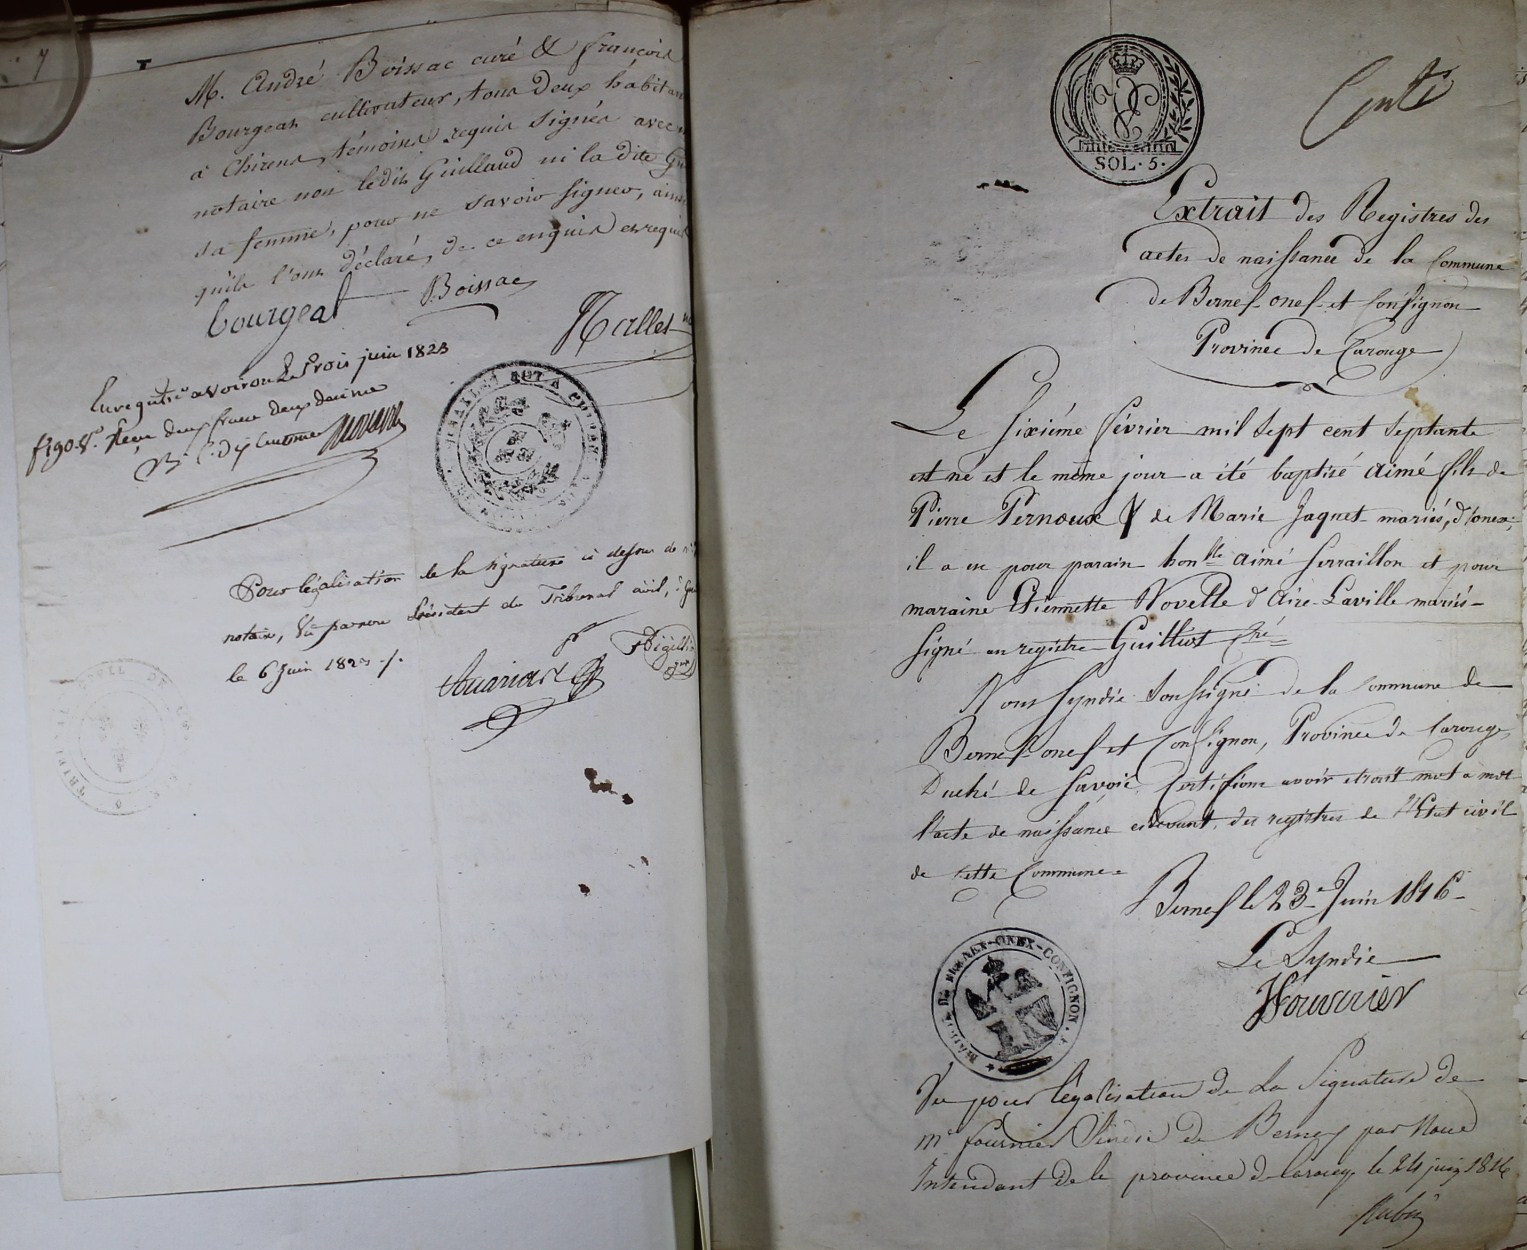 7
M. André Boissac curé & françois
Bourgeat cultivateur, tous deux habitan
à Chirens, témoins requis signés avec n
notaire non ledit Guillaud ni la dite Gu
sa femme, pour ne savoir signer, ainsi
qu'ils l'ont déclaré, de ce enquis et requis
bourgeat Boissac
Nallet
Enregistré a voiron Le trois juin 1823
f 190 v°. Reçu deux francs deux decimes
Pour légalisation de la signature ci dessus de
notaire, Vû par nous Président du Tribunal civil, à
le 6 Juin 1823 ./.
SOL. 5.
Extrait des Registres des
actes de naissance de la Commune
de Bernex-onex et Confignon
Province de Carouge
Le sixiéme février mil sept cent septante
est né et le même jour a été baptisé aimé fils de
Pierre Pernoux & de Marie Jaquet mariés, d'onex,
il a eu pour parain hon.ble aimé Serraillon et pour
maraine Etiennette Novelle d'Aire-Laville mariés-
signé au registre Guillot Cré
Nous syndic soussigné de la Commune de
Bernex-onex et Confignon, Province de Carouge,
Duché de Savoie, Certifions avoir extrait mot a mot
l'acte de naissance cidevant des registres de l'Etat civil
de cette Commune
Bernex le 23e Juin 1816-
Le Syndic
MAIRIE DE BERNEX-ONEX-CONFIGNON
Vu pour légalisation de la Signature de
Mr fournier Sindic de Bernex par Nous
Intendant de la province de Carouge le 24 juin 1816